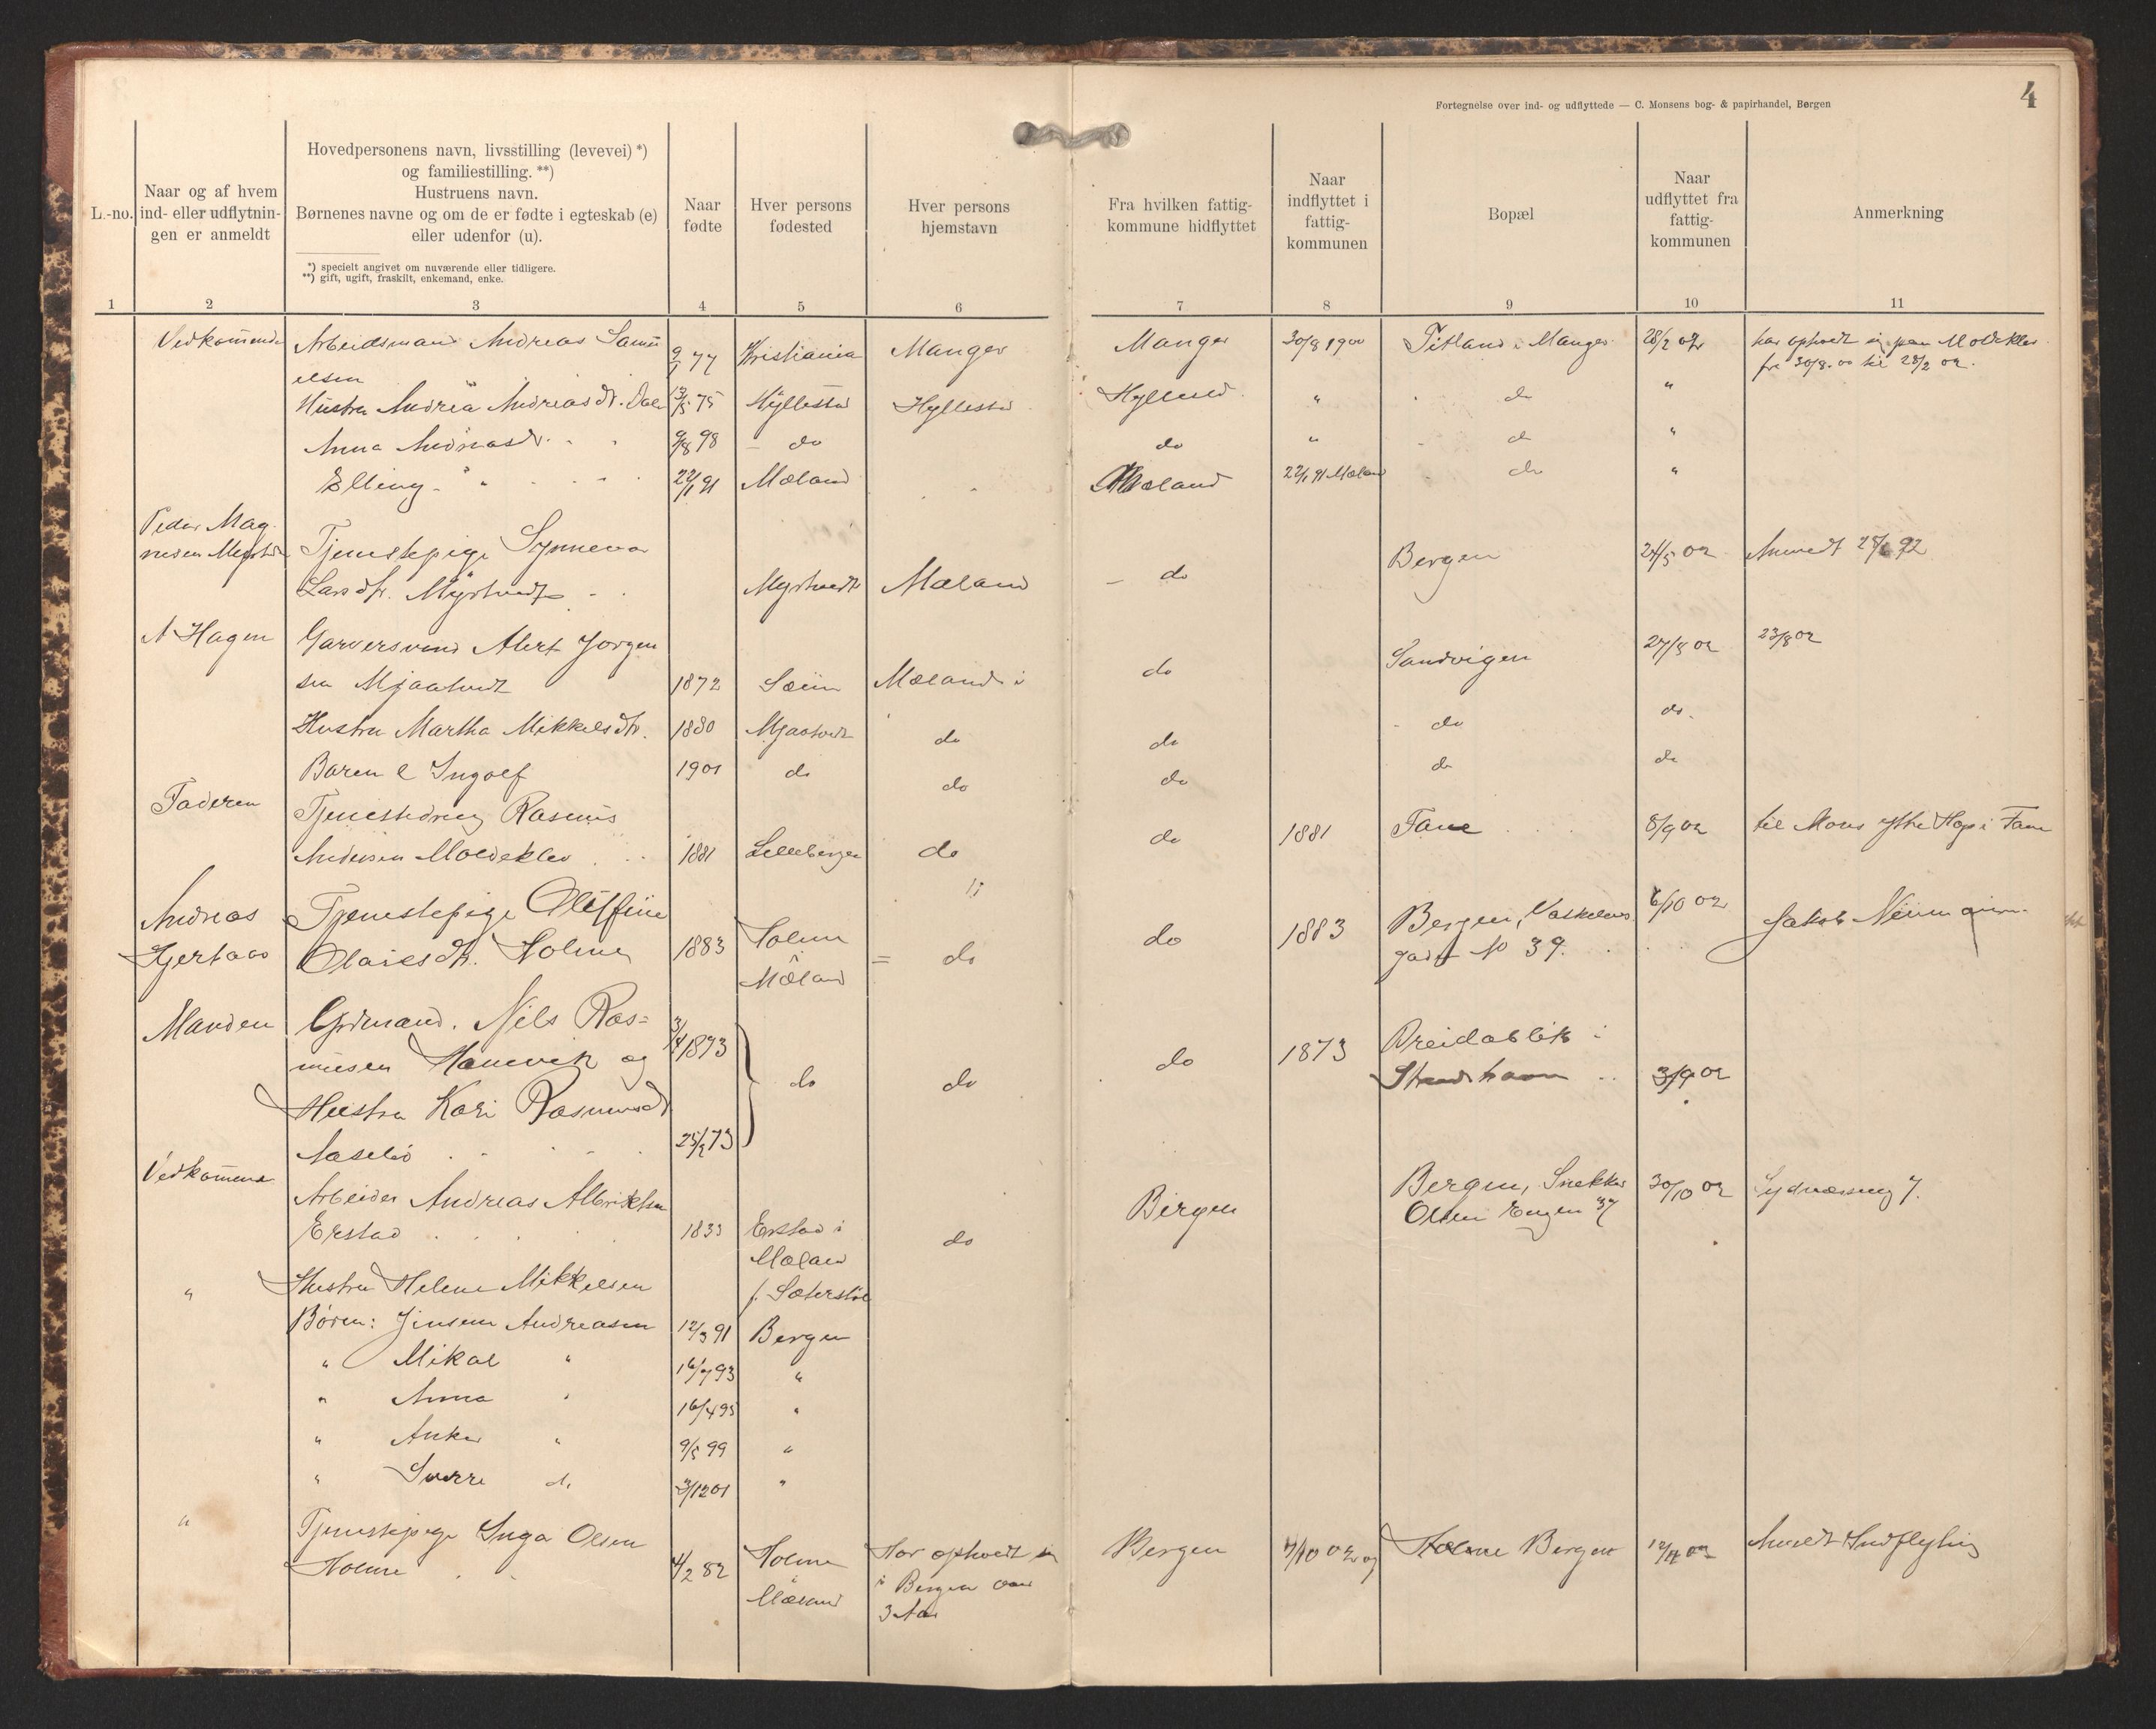 4
Fortegnelse over ind- og udflyttede — C. Monsens bog- & papirhandel, Bergen
L.-no.
Naar og af hvem
ind- eller udflytnin-
gen er anmeldt
Hovedpersonens navn, livsstilling (levevei) *)
og familiestilling. **)
Hustruens navn.
Børnenes navne og om de er fødte i egteskab (e)
eller udenfor (u).
*) specielt angivet om nuværende eller tidligere.
**) gift, ugift, fraskilt, enkemand, enke.
Naar
fødte
Hver persons
fødested
Hver persons
hjemstavn
Fra hvilken fattig-
kommune hidflyttet
Naar
indflyttet i
fattig-
kommunen
Bopæl
Naar
udflyttet fra
fattig-
kommunen
Anmerkning
1 2 3 4 5 6 7 8 9 10 11
Vedkommende Arbeidsmand Andreas Samu 77 Kristiania Manger Manger 30/8 1900 Titland i Manger 28/2 02 har ophodt sig paa Moldeklev
elsen fra 30/8.00 til 28/2 02.
Hustru Andrea Andreasdr. Dale 13/5 75 Hyllestad Hyllestad Hyllestad " do "
Anna Andreasdr. 9/8 98 do do " do "
Elling " 22/1 91 Mæland Mæland 22/1 91 Mæland do "
Peder Mag
nesen Myrtvedt Tjenestepige Synneva Bergen 24/5 02 Anmeldt
Larsdtr. Myrtvedt Myrtvedt Mæland do
N Hagen Garversvend Alert Jørgen Sandvigen 27/8 02 23/8 02
sen Mjaatvedt 1872 Sæim Mæland i do
Hustru Martha Mikkelsdtr. 1880 Mjaatvedt do do do do.
Barn e Ingolf 1901 do do do do do
Faderen Tjenestedreng Rasmus
Andersen Moldeklev 1881 Lillebergen do do 1881 Fane 8/9 02 til Mons Ytre Hop i Fane
Andreas Tjenestepige Oliffine Holme do 1883 Bergen, 6/10 02 Jakob
Hjertaas Olaiesdtr. Holme 1883 Mæland do gade No 39.
Manden Grdmand. Nils Ras= 3/4 1873 do 1873 Breidablik i
musen Hanevik og do do Strandshavn 3/9 02
Hustru Kari Rasmusdr
25/2 73
Vedkommende Arbeider Andreas Albriktsen Bergen Bergen, Snekker 30/10 02 Sydnæssmug 7.
Erstad 1833 Erstad i do Olsen Engen 37
Mæland
" Hustru Helene Mikkelsen f. Sæterstøl
Børn: Jensen Andreasen 12/3 91 Bergen
" Mikal " 16/7 93 "
" Anna " 16/4 95 "
" Anker " 9/5 99 "
" Sverre do 3/12 01 "
" Tjenestepige Inga Olsen Bergen Holme Bergen Anmeldt Indflytning
Holme 4/2 82 Holme Har ophodt sig
Mæland i Bergen over
3 Aar